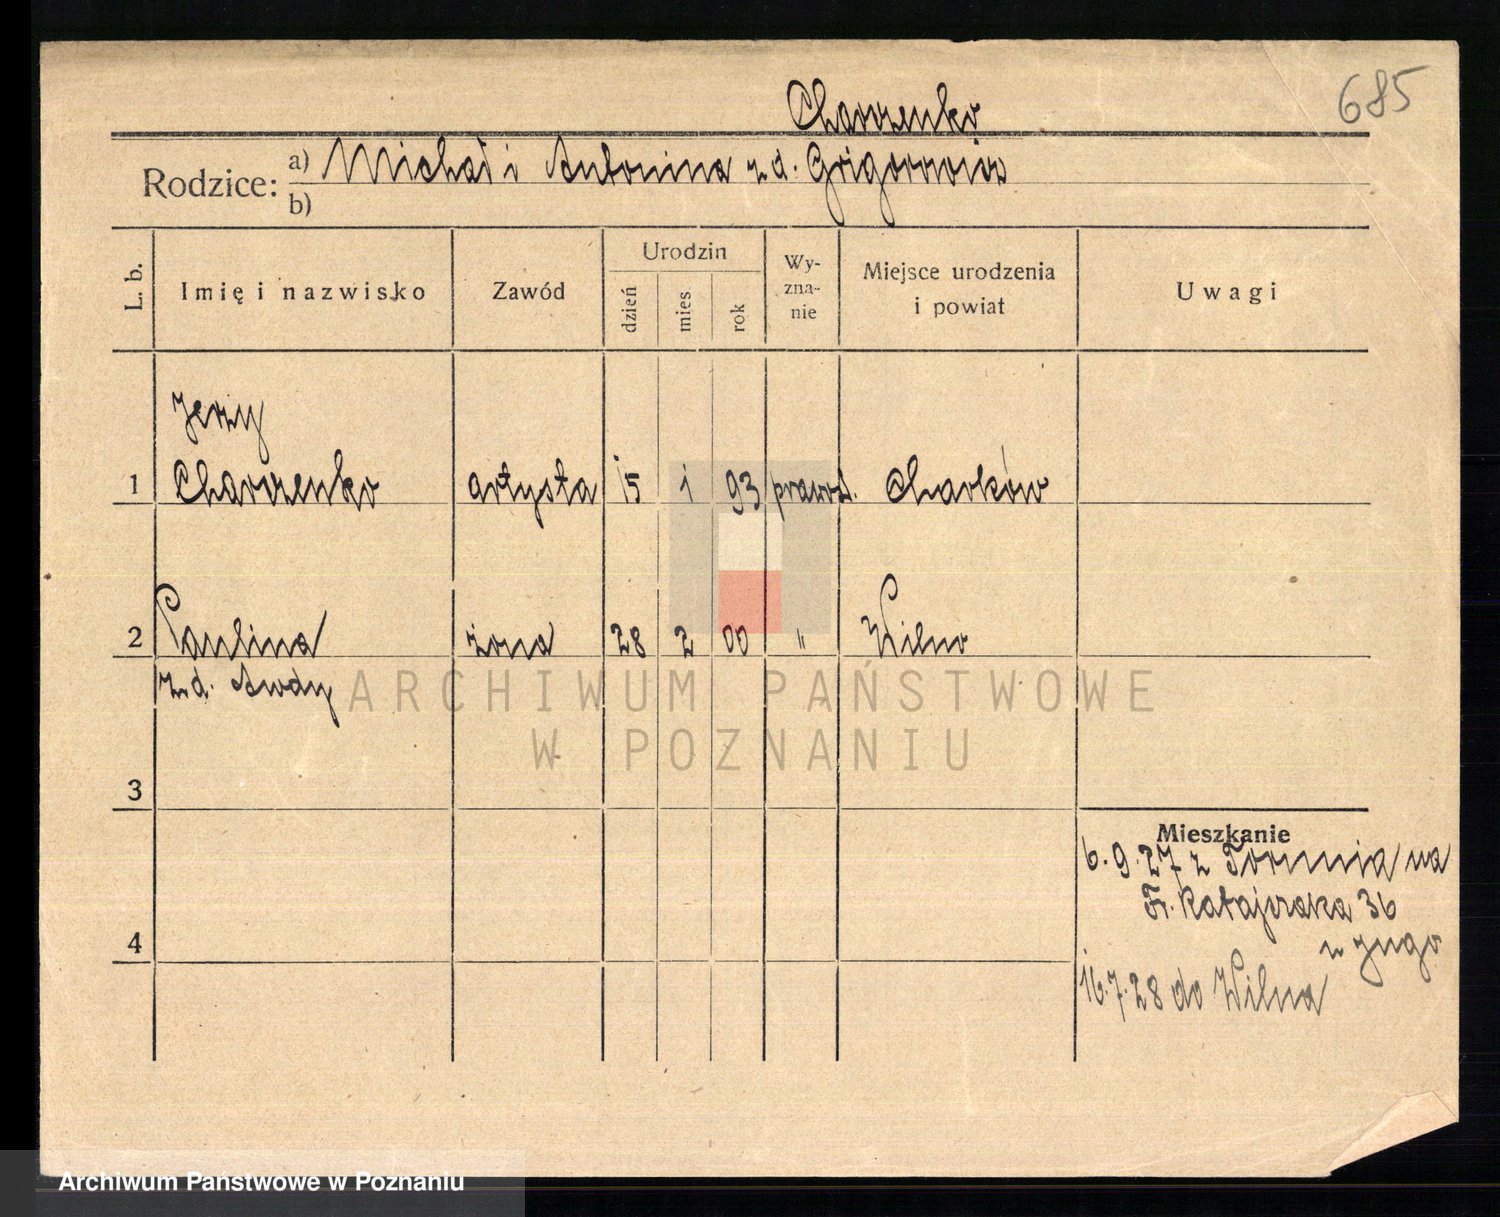 685
Charzenko
Rodzice: a) Michał i Antonina z d. Grigorowicz
b)
L. b. Imię i nazwisko Zawód Urodzin dzień mies rok Wy-zna-nie Miejsce urodzenia i powiat Uwagi
Jerzy
1 Charzenko artysta 15 1 93 prawosł. Charków
2 Paulina żona 28 2 00 " Wilno
z d. Awdy
ARCHIWUM PAŃSTWOWE
W POZNANIU
3
Mieszkanie
6.9.27 z Torunia na
Fr. Ratajczaka 36
4
16.7.28 do Wilna
Archiwum Państwowe w Poznaniu